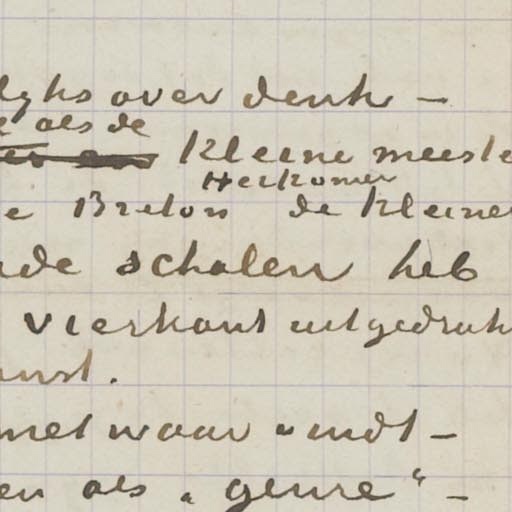 over denk –
als de
kleine meeste
Herkomer
e Breton de kleine
nde scholen heb
vierkant uitgedruk
unst.
niet waar vindt –
en als „genre“ –